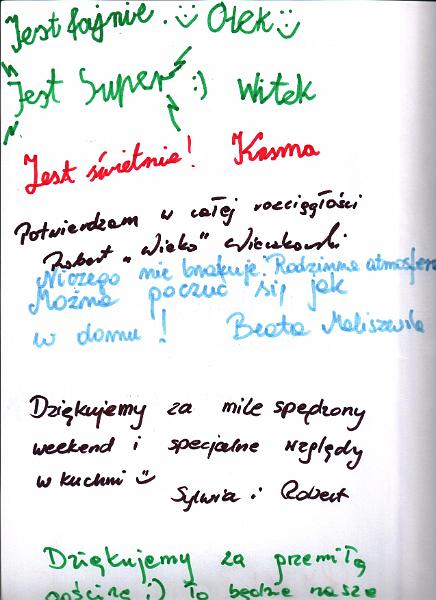 Jest fajnie. :) Olek :)
Jest Super :) Witek
Jest świetnie! Kasma
Potwierdzam w całej rozciągłości
Robert "Wieko" Wieczkowski
Niczego nie brakuje. Rodzinna atmosfera
Można poczuć się jak
w domu! Beata Maliszewska
Dziękujemy za mile spędzony
weekend i specjalne względy
w kuchni :)
Sylwia i Robert
Dziękujemy za przemiłą
gościnę :) To będzie nasze